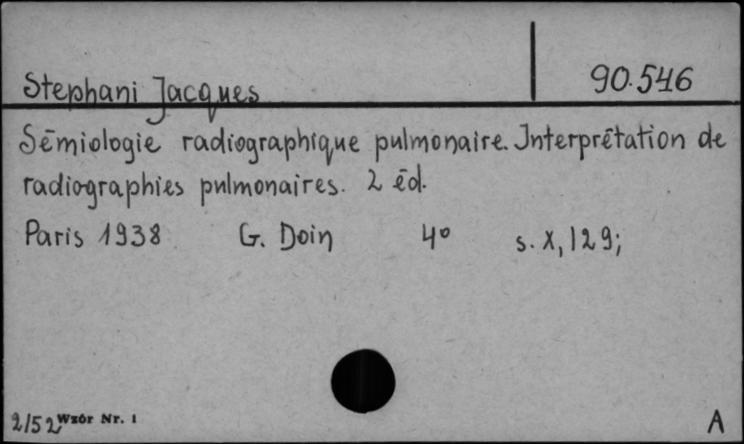 Stephani Jacques
90.546
Sēmiologie radiographique pulmonaire. Interprētation de
radiographies pulmonaires. 2 ēd.
Paris 1938 G. Doin 4º s. X, 129;
2/52 Wzór Nr. 1
A